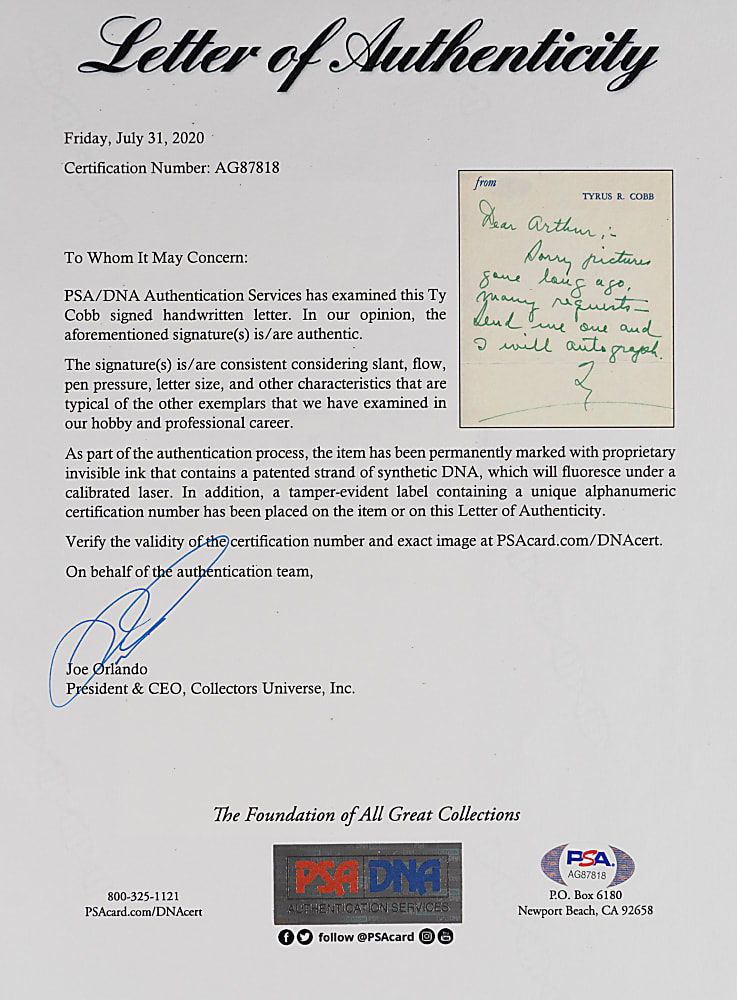 Letter of Authenticity
Friday, July 31, 2020
Certification Number: AG87818
from
TYRUS R. COBB
Dear Arthur,:-
Sorry pictures
gone long ago,
many requests-
Send me one and
I will autograph.
Ty
To Whom It May Concern:
PSA/DNA Authentication Services has examined this Ty
Cobb signed handwritten letter. In our opinion, the
aforementioned signature(s) is/are authentic.
The signature(s) is/are consistent considering slant, flow,
pen pressure, letter size, and other characteristics that are
typical of the other exemplars that we have examined in
our hobby and professional career.
As part of the authentication process, the item has been permanently marked with proprietary
invisible ink that contains a patented strand of synthetic DNA, which will fluoresce under a
calibrated laser. In addition, a tamper-evident label containing a unique alphanumeric
certification number has been placed on the item or on this Letter of Authenticity.
Verify the validity of the certification number and exact image at PSAcard.com/DNAcert.
On behalf of the authentication team,
Joe Orlando
President & CEO, Collectors Universe, Inc.
The Foundation of All Great Collections
800-325-1121
PSAcard.com/DNAcert
PSA DNA
AUTHENTICATION SERVICES
follow @PSAcard
PSA
AG87818
P.O. Box 6180
Newport Beach, CA 92658